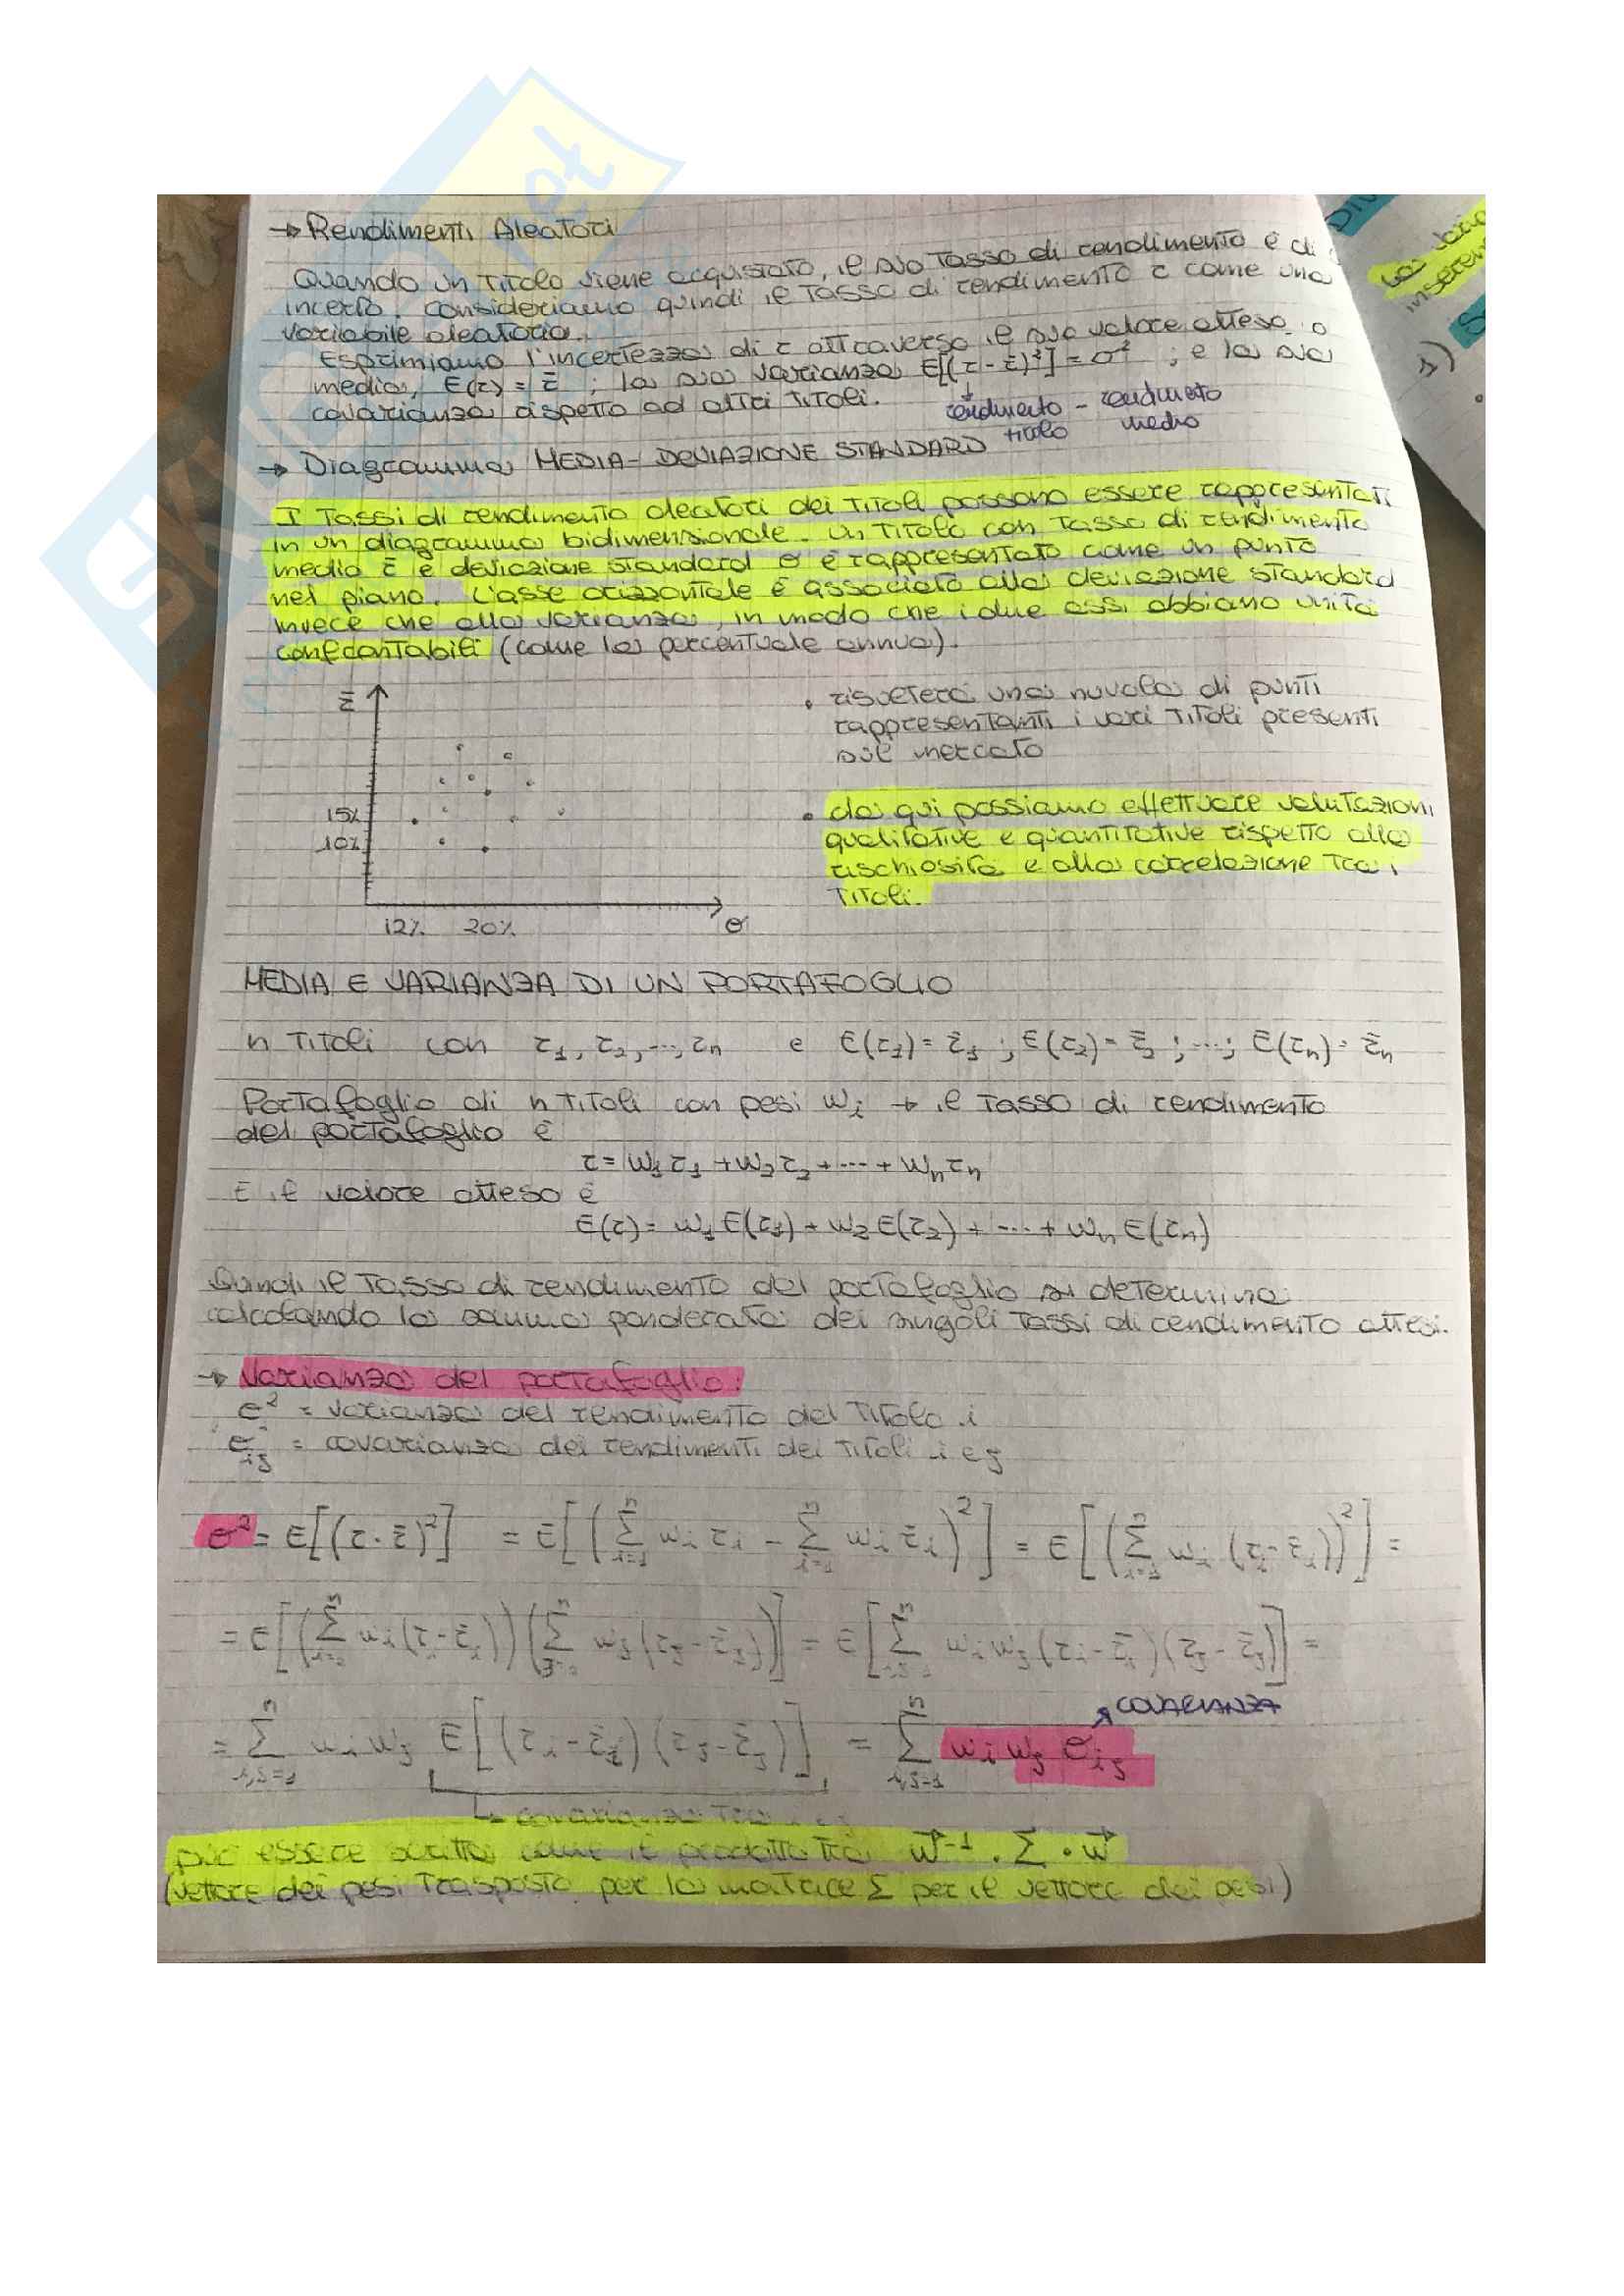 → Rendimenti Aleatori
Quando un titolo viene acquistato, il suo tasso di rendimento è di
incerto. Consideriamo quindi il tasso di rendimento r come una
variabile aleatoria.
Esprimiamo l'incertezza di r attraverso il suo valore atteso o
media, E(r) = r̄ ; la sua varianza E[(r - r̄)²] = σ² ; e la sua
covarianza rispetto ad altri titoli.
rendimento - rendimento
titolo medio
→ Diagramma MEDIA - DEVIAZIONE STANDARD
I tassi di rendimento aleatori dei titoli possono essere rappresentati
in un diagramma bidimensionale. Un titolo con tasso di rendimento
medio r̄ e deviazione standard σ è rappresentato come un punto
nel piano. L'asse orizzontale è associato alla deviazione standard
invece che alla varianza, in modo che i due assi abbiano unità
confrontabili (come la percentuale annua).
r̄
15%
10%
12% 20% σ
• risulterà una nuvola di punti
rappresentanti i vari titoli presenti
sul mercato
• da qui possiamo effettuare valutazioni
qualitative e quantitative rispetto alla
rischiosità e alla correlazione tra i
titoli.
MEDIA E VARIANZA DI UN PORTAFOGLIO
n titoli con r₁, r₂, ..., rₙ e E(r₁) = r̄₁ ; E(r₂) = r̄₂ ; ...; E(rₙ) = r̄ₙ
Portafoglio di n titoli con pesi wᵢ → il tasso di rendimento
del portafoglio è
r = w₁r₁ + w₂r₂ + ... + wₙrₙ
E il valore atteso è
E(r) = w₁E(r₁) + w₂E(r₂) + ... + wₙE(rₙ)
Quindi il tasso di rendimento del portafoglio si determina
calcolando la somma ponderata dei singoli tassi di rendimento attesi.
→ Varianza del portafoglio:
σ² = varianza del rendimento del titolo i
σᵢⱼ = covarianza dei rendimenti dei titoli i e j
σ² = E[(r - r̄)²] = E[(Σⁿᵢ₌₁ wᵢ rᵢ - Σⁿᵢ₌₁ wᵢ r̄ᵢ)²] = E[(Σⁿᵢ₌₁ wᵢ (rᵢ - r̄ᵢ))²] =
= E[(Σⁿᵢ₌₁ wᵢ(rᵢ - r̄ᵢ))(Σⁿⱼ₌₁ wⱼ(rⱼ - r̄ⱼ))] = E[Σⁿᵢ,ⱼ₌₁ wᵢwⱼ(rᵢ - r̄ᵢ)(rⱼ - r̄ⱼ)] =
= Σⁿᵢ,ⱼ₌₁ wᵢwⱼ E[(rᵢ - r̄ᵢ)(rⱼ - r̄ⱼ)] = Σⁿᵢ,ⱼ₌₁ wᵢwⱼ σᵢⱼ
COVARIANZA
covarianza tra i e j
può essere scritta come il prodotto tra w⃗⁻¹ · Σ · w⃗
(vettore dei pesi trasposto per la matrice Σ per il vettore dei pesi)